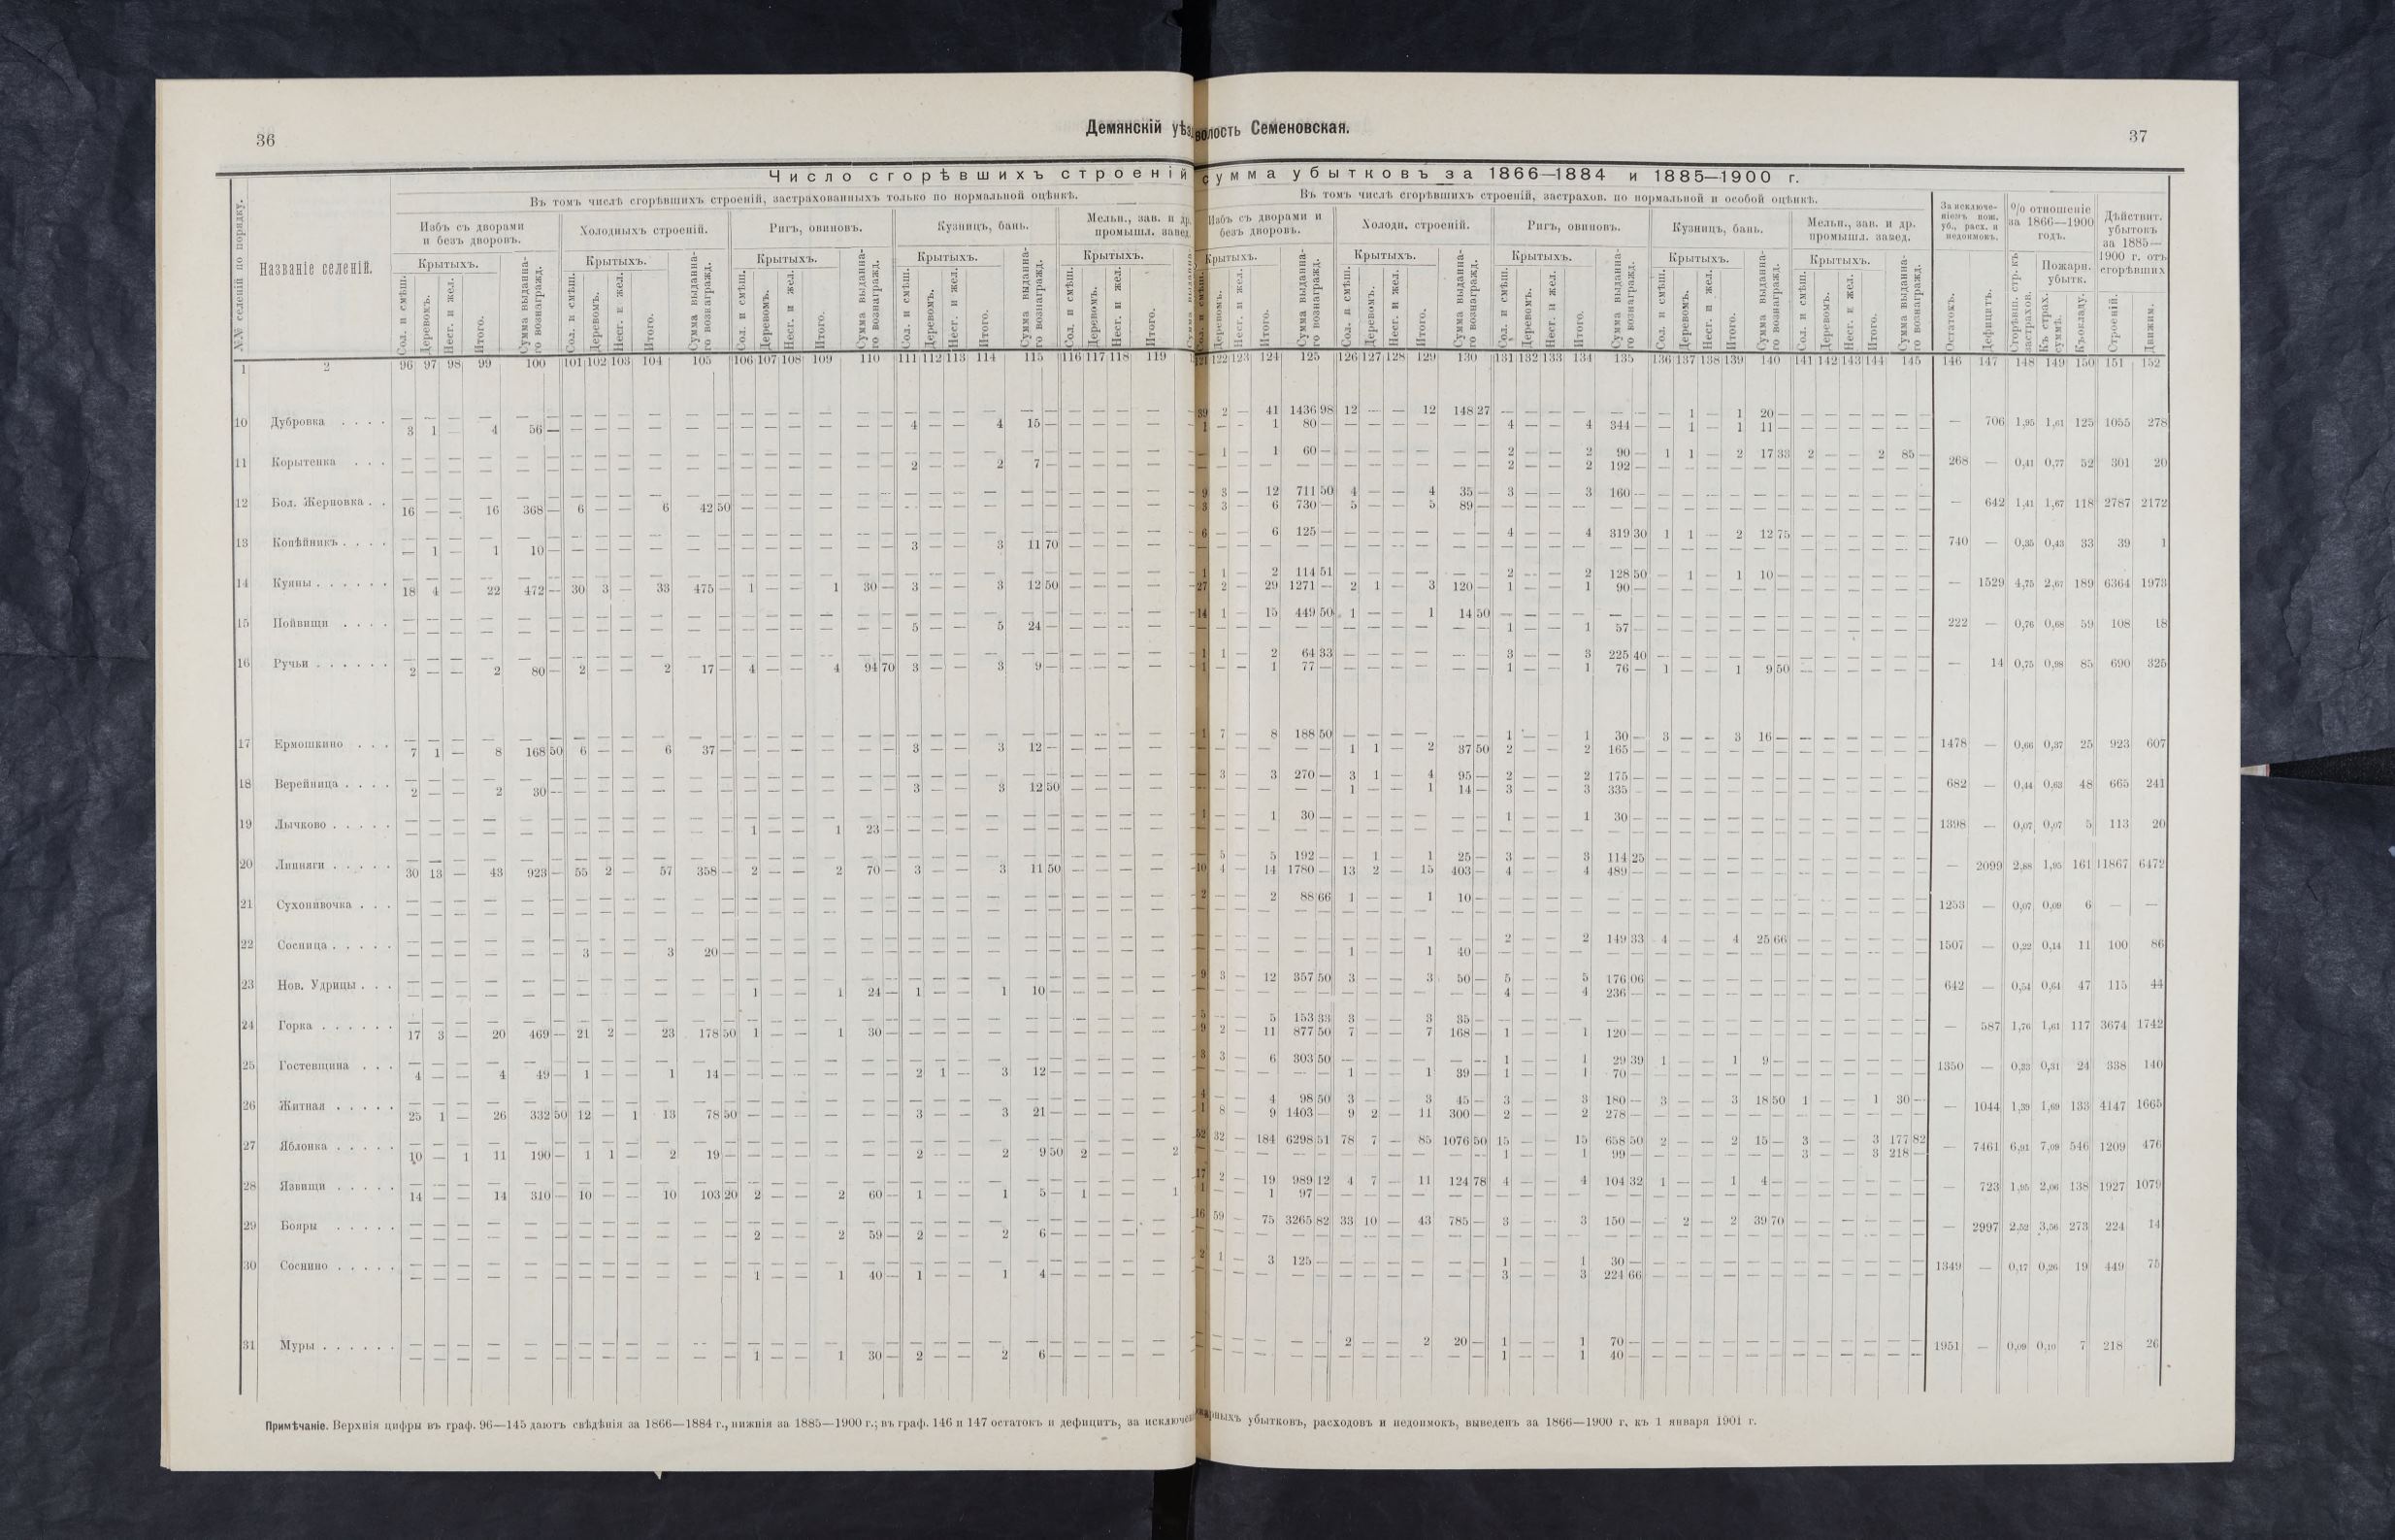 36
Демянскій уѣз
волость Семеновская.
37
Число сгорѣвшихъ строеній
сумма убытковъ за 1866—1884 и 1885—1900 г.
Въ томъ числѣ сгорѣвшихъ строеній, застрахованныхъ только по нормальной оцѣнкѣ.
Въ томъ числѣ сгорѣвшихъ строеній, застрахов. по нормальной и особой оцѣнкѣ.
№№ селеній по порядку.
Названіе селеній.
Избъ съ дворами и безъ дворовъ.
Холодныхъ строеній.
Ригъ, овиновъ.
Кузницъ, бань.
Мельн., зав. и др. промышл. завед.
Избъ съ дворами и безъ дворовъ.
Холодн. строеній.
Ригъ, овиновъ.
Кузницъ, бань.
Мельн., зав. и др. промышл. завед.
За исключе-
ніемъ пож.
уб., расх. и
недоимокъ.
% отношеніе
за 1866—1900
годъ.
Дѣйствит.
убытокъ
за 1885—
1900 г. отъ
сгорѣвшихъ
Крытыхъ. Сол. и смѣш. Деревомъ. Несг. и жел. Итого. Сумма выданна-го вознагражд.
Остатокъ. Дефицитъ. Сгорѣвш. стр. къ застрахов. Пожарн. убытк. Къ страх. суммѣ. Къ окладу. Строеній. Движим.
1 2 96 97 98 99 100 101 102 103 104 105 106 107 108 109 110 111 112 113 114 115 116 117 118 119
121 122 123 124 125 126 127 128 129 130 131 132 133 134 135 136 137 138 139 140 141 142 143 144 145 146 147 148 149 150 151 152
39 2 — 41 1436 98 12 — — 12 148 27 — — — — — — 1 — 1 20 — — — — — —
10 Дубровка . . . . 3 1 — 4 56 — — — — — — — — — — — 4 — — 4 15 — — — — —
1 — — 1 80 — — — — — — 4 — — 4 344 — — 1 — 1 11 — — — — — — — 706 1,95 1,61 125 1055 278
— 1 — 1 60 — — — — — — 2 — — 2 90 — 1 1 — 2 17 33 2 — — 2 85 —
11 Корытенка . . . — — — — — — — — — — — — — — — 2 — — 2 7 — — — — —
— — — — — — — — — — 2 — — 2 192 — — — — — — — — — — — 268 — 0,41 0,77 52 301 20
9 3 — 12 711 50 4 — — 4 35 — 3 — — 3 160 — — — — — — — — — — —
12 Бол. Жерновка . . 16 — — 16 368 — 6 — — 6 42 50 — — — — — — — — — — — — — —
3 3 — 6 730 — 5 — — 5 89 — — — — — — — — — — — — — — — — — 642 1,41 1,67 118 2787 2172
6 — — 6 125 — — — — — — 4 — — 4 319 30 1 1 — 2 12 75 — — — — —
13 Копѣйникъ . . . . — 1 — 1 10 — — — — — — — — — — — 3 — — 3 11 70 — — — —
740 — 0,35 0,43 33 39 1
1 1 — 2 114 51 — — — — — 2 — — 2 128 50 — 1 — 1 10 — — — — — —
14 Куяны . . . . . . 18 4 — 22 472 — 30 3 — 33 475 — 1 — — 1 30 — 3 — — 3 12 50 — — — —
27 2 — 29 1271 — 2 1 — 3 120 — 1 — — 1 90 — — — — — — — — — — — — 1529 4,75 2,67 189 6364 1973
14 1 — 15 449 50 1 — — 1 14 50 — — — — — — — — — — — — — — —
15 Пойвищи . . . . — — — — — — — — — — — — — — — 5 — — 5 24 — — — — —
— — — — — — — — — — 1 — — 1 57 — — — — — — — — — — — 222 — 0,76 0,68 59 108 18
1 1 — 2 64 33 — — — — — 3 — — 3 225 40 — — — — — — — — — —
16 Ручьи . . . . . . 2 — — 2 80 — 2 — — 2 17 — 4 — — 4 94 70 3 — — 3 9 — — — — —
1 — — 1 77 — — — — — — 1 — — 1 76 — 1 — — 1 9 50 — — — — — — 14 0,75 0,98 85 690 325
1 7 — 8 188 50 — — — — — 1 — — 1 30 — 3 — — 3 16 — — — — — —
17 Ермошкино . . . 7 1 — 8 168 50 6 — — 6 37 — — — — — — 3 — — 3 12 — — — — —
— — — — — 1 1 — 2 37 50 2 — — 2 165 — — — — — — — — — — — 1478 — 0,66 0,37 25 923 607
— 3 — 3 270 — 3 1 — 4 95 — 2 — — 2 175 — — — — — — — — — — —
18 Верейница . . . . 2 — — 2 30 — — — — — — — — — — — 3 — — 3 12 50 — — — —
— — — — — 1 — — 1 14 — 3 — — 3 335 — — — — — — — — — — — 682 — 0,44 0,63 48 665 241
1 — — 1 30 — — — — — — 1 — — 1 30 — — — — — — — — — — —
19 Лычково . . . . . — — — — — — — — — — 1 — — 1 23 — — — — — — — — — —
1398 — 0,07 0,07 5 113 20
— 5 — 5 192 — — 1 — 1 25 — 3 — — 3 114 25 — — — — — — — — — —
20 Липняги . . . . . 30 13 — 43 923 — 55 2 — 57 358 — 2 — — 2 70 — 3 — — 3 11 50 — — — —
10 4 — 14 1780 — 13 2 — 15 403 — 4 — — 4 489 — — — — — — — — — — — — 2099 2,88 1,95 161 11867 6472
2 — — 2 88 66 1 — — 1 10 — — — — — — — — — — — — — — — —
21 Сухонивочка . . . — — — — — — — — — — — — — — — — — — — — — — — —
1253 — 0,07 0,09 6 — —
— — — — — — — — — — 2 — — 2 149 33 4 — — 4 25 66 — — — — —
22 Сосница . . . . . — — — — — 3 — — 3 20 — — — — — — — — — — — — — — —
— — — — — 1 — — 1 40 — — — — — — — — — — — — — — — — 1507 — 0,22 0,14 11 100 86
9 3 — 12 357 50 3 — — 3 50 — 5 — — 5 176 06 — — — — — — — — — —
23 Нов. Удрицы . . . — — — — — — — — — — 1 — — 1 24 — 1 — — 1 10 — — — — —
— — — — — — — — — — 4 — — 4 236 — — — — — — — — — — — 642 — 0,54 0,64 47 115 44
5 — — 5 153 33 3 — — 3 35 — — — — — — — — — — — — — — — —
24 Горка . . . . . . 17 3 — 20 469 — 21 2 — 23 178 50 1 — — 1 30 — — — — — — — — — —
9 2 — 11 877 50 7 — — 7 168 — 1 — — 1 120 — — — — — — — — — — — — 587 1,76 1,61 117 3674 1742
3 3 — 6 303 50 — — — — — 1 — — 1 29 39 1 — — 1 9 — — — — — —
25 Гостевщина . . . 4 — — 4 49 — 1 — — 1 14 — — — — — — 2 1 — 3 12 — — — — —
— — — — — 1 — — 1 39 — 1 — — 1 70 — — — — — — — — — — — 1350 — 0,33 0,31 24 338 140
4 — — 4 98 50 3 — — 3 45 — 3 — — 3 180 — 3 — — 3 18 50 1 — — 1 30 —
26 Житная . . . . . 25 1 — 26 332 50 12 — 1 13 78 50 — — — — — 3 — — 3 21 — — — — —
1 8 — 9 1403 — 9 2 — 11 300 — 2 — — 2 278 — — — — — — — — — — — — 1044 1,39 1,69 133 4147 1665
52 32 — 184 6298 51 78 7 — 85 1076 50 15 — — 15 658 50 2 — — 2 15 — 3 — — 3 177 82
27 Яблонка . . . . . 10 — 1 11 190 — 1 1 — 2 19 — — — — — — 2 — — 2 9 50 2 — — 2
— — — — — — — — — — 1 — — 1 99 — — — — — — 3 — — 3 218 — — 7461 6,91 7,09 546 1209 476
17 2 — 19 989 12 4 7 — 11 124 78 4 — — 4 104 32 1 — — 1 4 — — — — — —
28 Язвищи . . . . . 14 — — 14 310 — 10 — — 10 103 20 2 — — 2 60 — 1 — — 1 5 — 1 — — 1
1 — — 1 97 — — — — — — — — — — — — — — — — — — — — — — 723 1,95 2,06 138 1927 1079
16 59 — 75 3265 82 33 10 — 43 785 — 3 — — 3 150 — — 2 — 2 39 70 — — — — —
29 Бояры . . . . . — — — — — — — — — — 2 — — 2 59 — 2 — — 2 6 — — — — —
— 2997 2,52 3,56 273 224 14
2 1 — 3 125 — — — — — — 1 — — 1 30 — — — — — — — — — — —
30 Соснино . . . . . — — — — — — — — — — 1 — — 1 40 — 1 — — 1 4 — — — — —
— — — — — — — — — — 3 — — 3 224 66 — — — — — — — — — — 1349 — 0,17 0,26 19 449 75
— — — — — 2 — — 2 20 — 1 — — 1 70 — — — — — — — — — — —
31 Муры . . . . . . — — — — — — — — — — 1 — — 1 30 — 2 — — 2 6 — — — — —
— — — — — — — — — — 1 — — 1 40 — — — — — — — — — — — 1951 — 0,09 0,10 7 218 26
Примѣчаніе. Верхнія цифры въ граф. 96—145 даютъ свѣдѣнія за 1866—1884 г., нижнія за 1885—1900 г.; въ граф. 146 и 147 остатокъ и дефицитъ, за исключе
убытковъ, расходовъ и недоимокъ, выведенъ за 1866—1900 г. къ 1 января 1901 г.